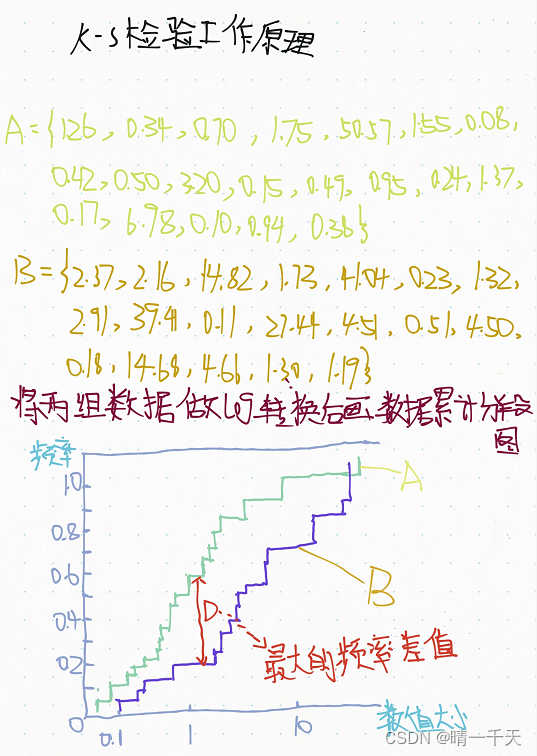 K-S检验工作原理
A={1.26, 0.34, 0.70, 1.75, 50.57, 1.55, 0.08,
0.42, 0.50, 3.20, 0.15, 0.49, 0.95, 0.24, 1.37,
0.17, 6.98, 0.10, 0.94, 0.38}
B={2.37, 2.16, 14.82, 1.73, 41.04, 0.23, 1.32,
2.91, 39.41, 0.11, 27.44, 4.51, 0.51, 4.50,
0.18, 14.68, 4.66, 1.30, 1.19}
将两组数据做log转换后画数据累计分段
图
频率
1.0
A
0.8
0.6
B
D
0.4
最大的频率差值
0.2
0
0.1
1
10
数值大小
CSDN @晴一千天